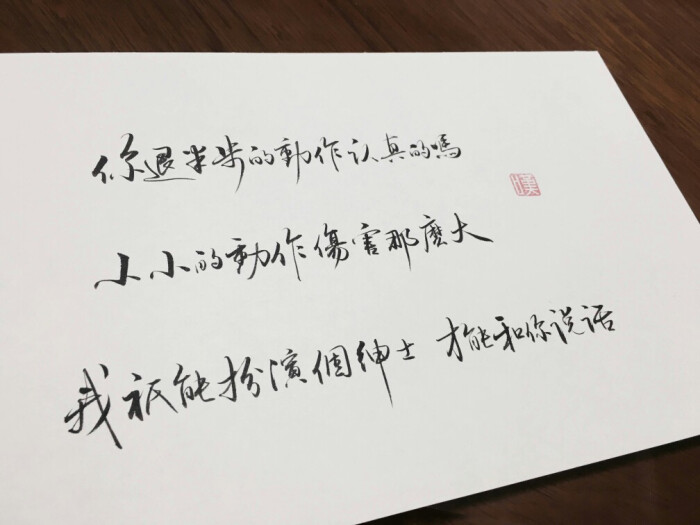 你退半步的動作认真的嗎
小小的動作傷害那麽大
我祇能扮演個紳士 才能和你说话